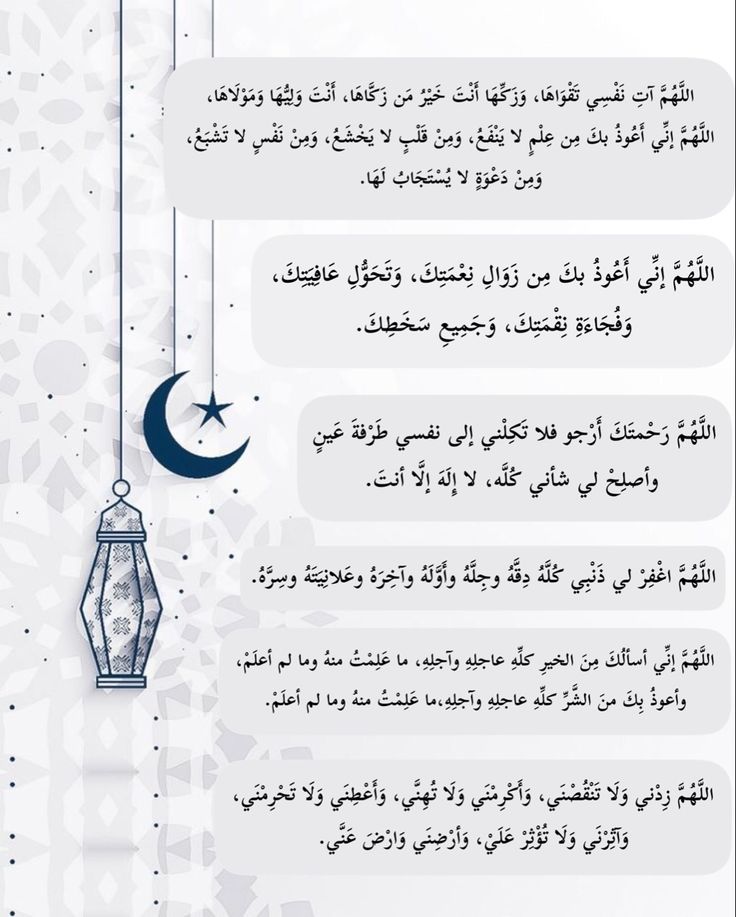 اللَّهُمَّ آتِ نَفْسِي تَقْوَاهَا، وَزَكِّهَا أَنْتَ خَيْرُ مَن زَكَّاهَا، أَنْتَ وَلِيُّهَا وَمَوْلَاهَا،
اللَّهُمَّ إنِّي أَعُوذُ بكَ مِن عِلْمٍ لا يَنْفَعُ، وَمِنْ قَلْبٍ لا يَخْشَعُ، وَمِنْ نَفْسٍ لا تَشْبَعُ،
وَمِنْ دَعْوَةٍ لا يُسْتَجَابُ لَهَا.
اللَّهُمَّ إنِّي أَعُوذُ بكَ مِن زَوَالِ نِعْمَتِكَ، وَتَحَوُّلِ عَافِيَتِكَ،
وَفُجَاءَةِ نِقْمَتِكَ، وَجَمِيعِ سَخَطِكَ.
اللَّهُمَّ رَحْمتَكَ أَرْجو فلا تَكِلْني إلى نفسي طَرْفةَ عَينٍ
وأصلِحْ لي شأني كُلَّه، لا إِلَهَ إلَّا أنتَ.
اللَّهُمَّ اغْفِرْ لي ذَنْبِي كُلَّهُ دِقَّهُ وجِلَّهُ وأَوَّلَهُ وآخِرَهُ وعَلانِيَتَهُ وسِرَّهُ.
اللَّهُمَّ إنِّي أسألُكَ مِنَ الخيرِ كلِّهِ عاجلِهِ وآجلِهِ، ما عَلِمْتُ منهُ وما لم أعلَمْ،
وأعوذُ بِكَ منَ الشَّرِّ كلِّهِ عاجلِهِ وآجلِهِ،ما عَلِمْتُ منهُ وما لم أعلَمْ.
اللَّهُمَّ زِدْني وَلَا تَنْقُصْنَي، وَأَكْرِمْنَي وَلَا تُهِنَّي، وَأَعْطِنَي وَلَا تَحْرِمْنَي،
وَآثِرْنَي وَلَا تُؤْثِرْ عَلَيْ، وَأرْضِنَي وَارْضَ عَنَّي.